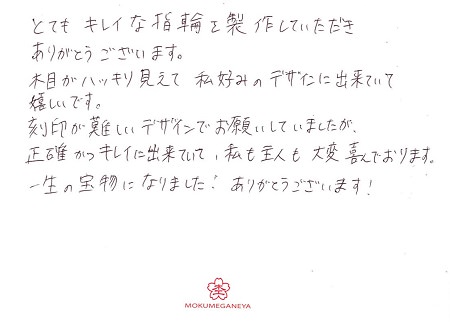 とても キレイな指輪を製作していただき
ありがとうございます。
木目がハッキリ見えて 私好みのデザインに出来ていて
嬉しいです。
刻印が難しいデザインでお願いしていましたが、
正確かつキレイに出来ていて、私も主人も 大変喜んでおります。
一生の宝物になりました! ありがとうございます!
MOKUMEGANEYA